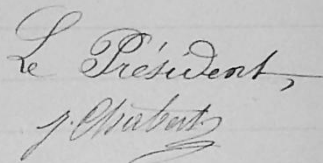 Le Président,
J. Chibert